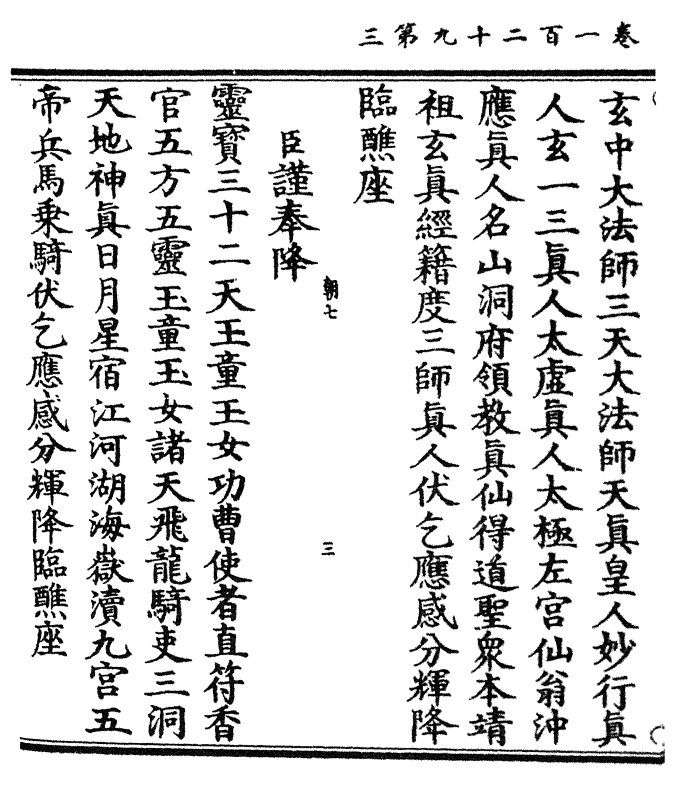 卷一百二十九第三
玄中大法師三天大法師天眞皇人妙行眞
人玄一三眞人太虛眞人太極左宮仙翁沖
應眞人名山洞府領教眞仙得道聖衆本靖
祖玄眞經籍度三師眞人伏乞應感分輝降
臨醮座
朝七
三
臣謹奉降
靈寶三十二天王童王女功曹使者直符香
官五方五靈玉童玉女諸天飛龍騎吏三洞
天地神眞日月星宿江河湖海嶽瀆九宮五
帝兵馬乗騎伏乞應感分輝降臨醮座